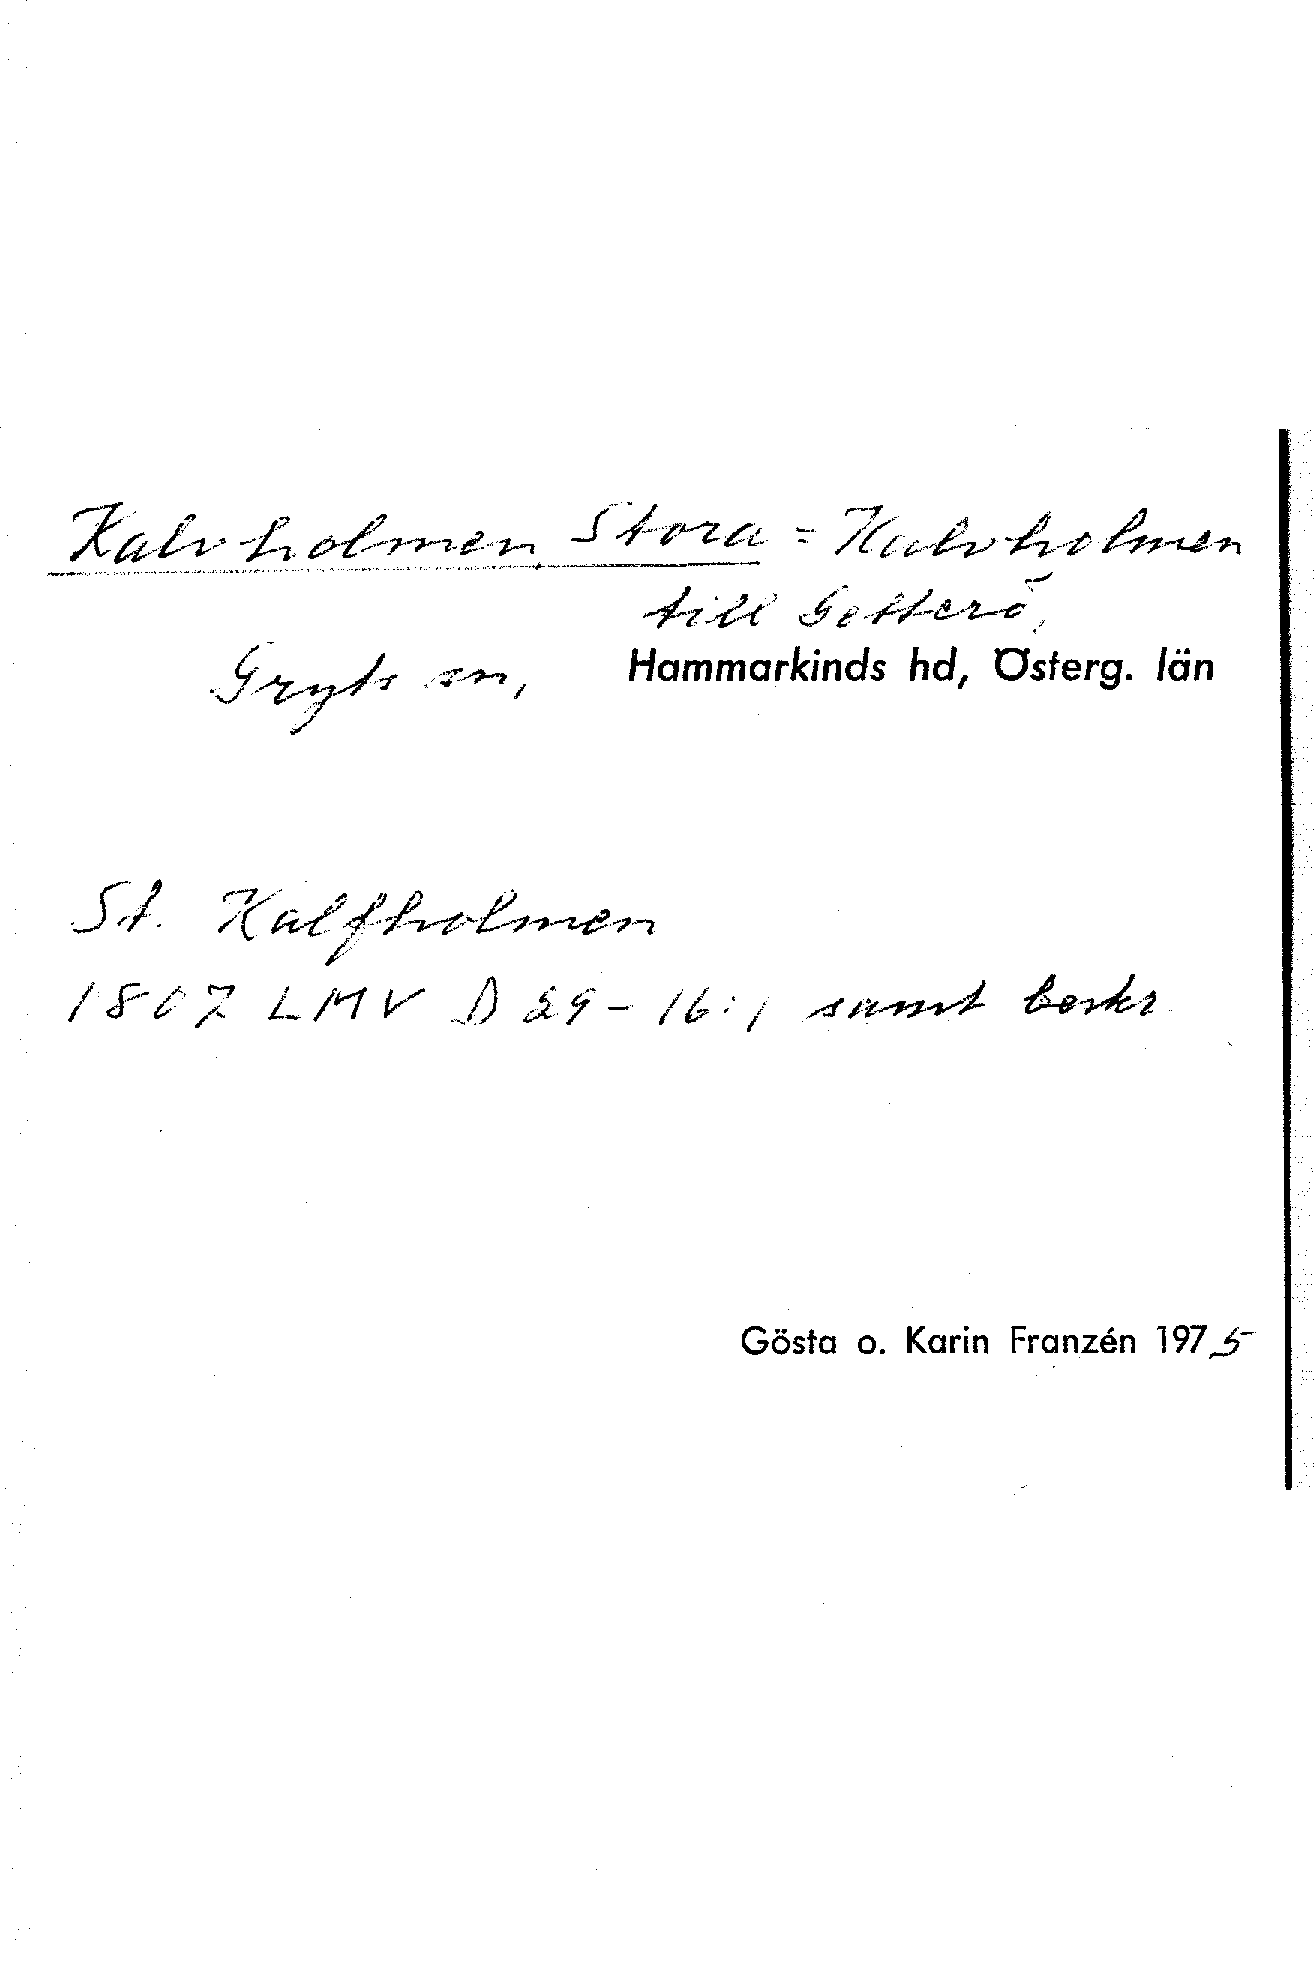 Kalvholmen, Stora = Kalvholmen
till Getterö,
Gryts sn, Hammarkinds hd, Österg. län
St. Kalfholmen
1807 LMV D 29-16:1 samt beskr
Gösta o. Karin Franzén 1975